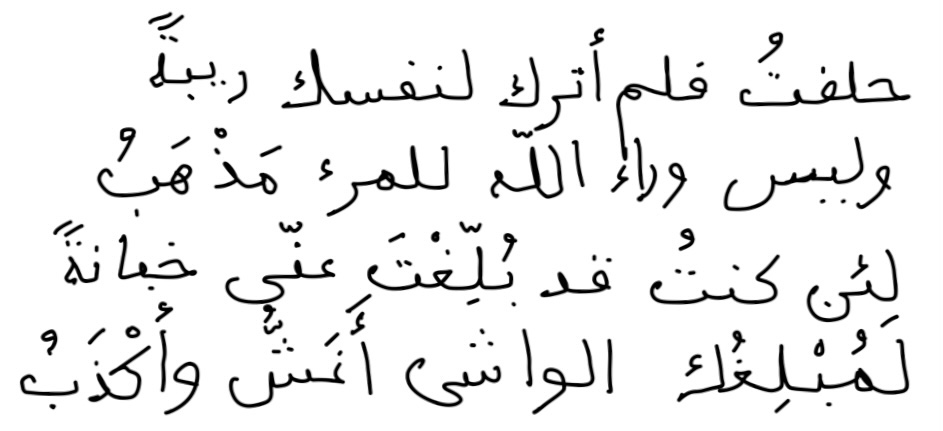 حلفتُ فلم أترك لنفسك ريبةً
وليس وراء اللّه للمرء مَذْهَبُ
لئن كنتُ قد بُلِّغْتَ عنّي خيانةً
لَمُبْلِغُك الواشي أَغَشُّ وأَكْذَبُ